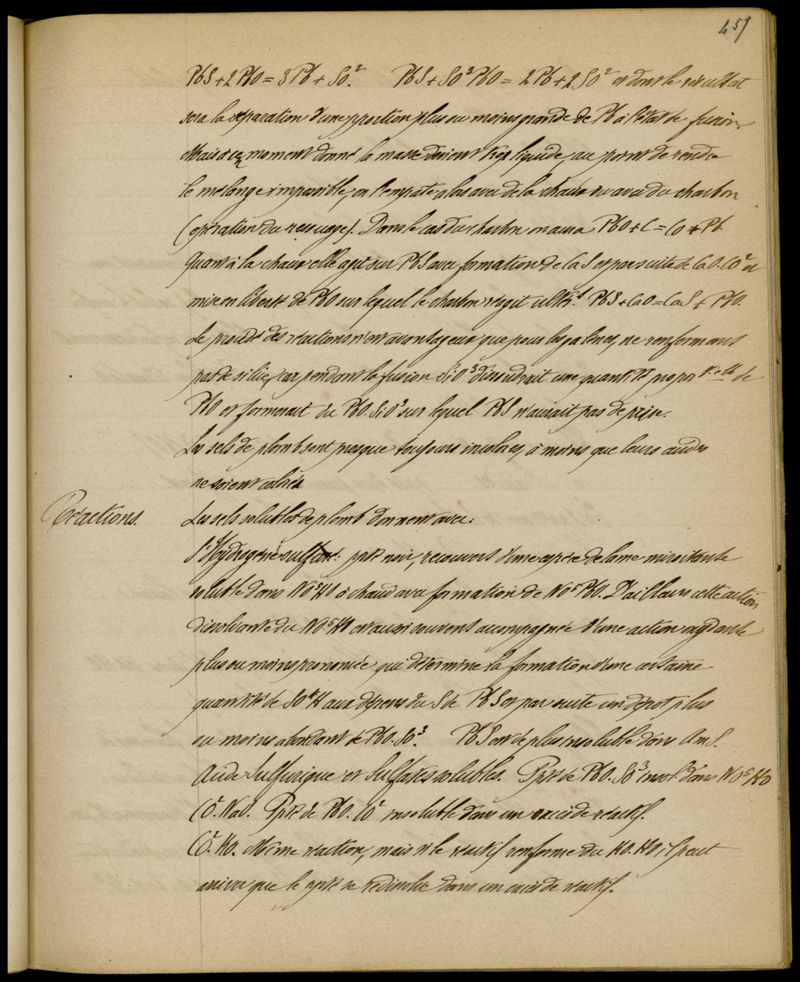 451
PbS + 2PbO = 3Pb + SO². PbS + SO³PbO = 2Pb + 2SO² et dont le résultat
sera la séparation d'une proportion plus ou moins grande de Pb à l'état de fusion.
Mais à un moment donné la masse devient trop liquide, au point de rendre
le mélange impossible, on l'empâte alors avec de la chaux ou avec du charbon
(opération du ressuage). Dans le cas du charbon on aura PbO + C = CO + Pb.
Quant à la chaux elle agit sur PbS avec formation de CaS et par suite de CaO.CO² et
mise en liberté de PbO sur lequel le charbon réagit ultért. PbS + CaO = CaS + PbO.
Le procédé des réactions n'est avantageux que pour les galènes, ne renfermant
pas de silice, car pendant la fusion SiO³ dissoudrait une quantité propor elle de
PbO et formerait du PbO.SiO³ sur lequel PbS n'aurait pas de prise.
Les sels de plomb sont presque toujours incolores, à moins que leurs acides
ne soient colorés.
Réactions. Les sels solubles de plomb donnent avec:
l'Hydrogène sulfuré: ppté noir, recouvert d'une espèce de lame miroitante
soluble dans NO⁵HO à chaud avec formation de NO⁵PbO. D'ailleurs cette action
dissolvante du NO⁵HO est aussi souvent accompagnée d'une action oxydante
plus ou moins prononcée qui détermine la formation d'une certaine
quantité de SO⁴H aux dépens du S de PbS et par suite un dépôt plus
ou moins abondant de PbO.SO³. PbS est de plus insoluble dans AmS.
Acide Sulfurique et Sulfates solubles. Ppté de PbO.SO³ insol. dans NO⁵HO
CO².NaO. Ppté de PbO.CO² insoluble dans un excès de réactif.
CO².KO. Même réaction, mais si le réactif renferme du KO.HO, il peut
arriver que le ppté se redissolve dans un excès de réactif.